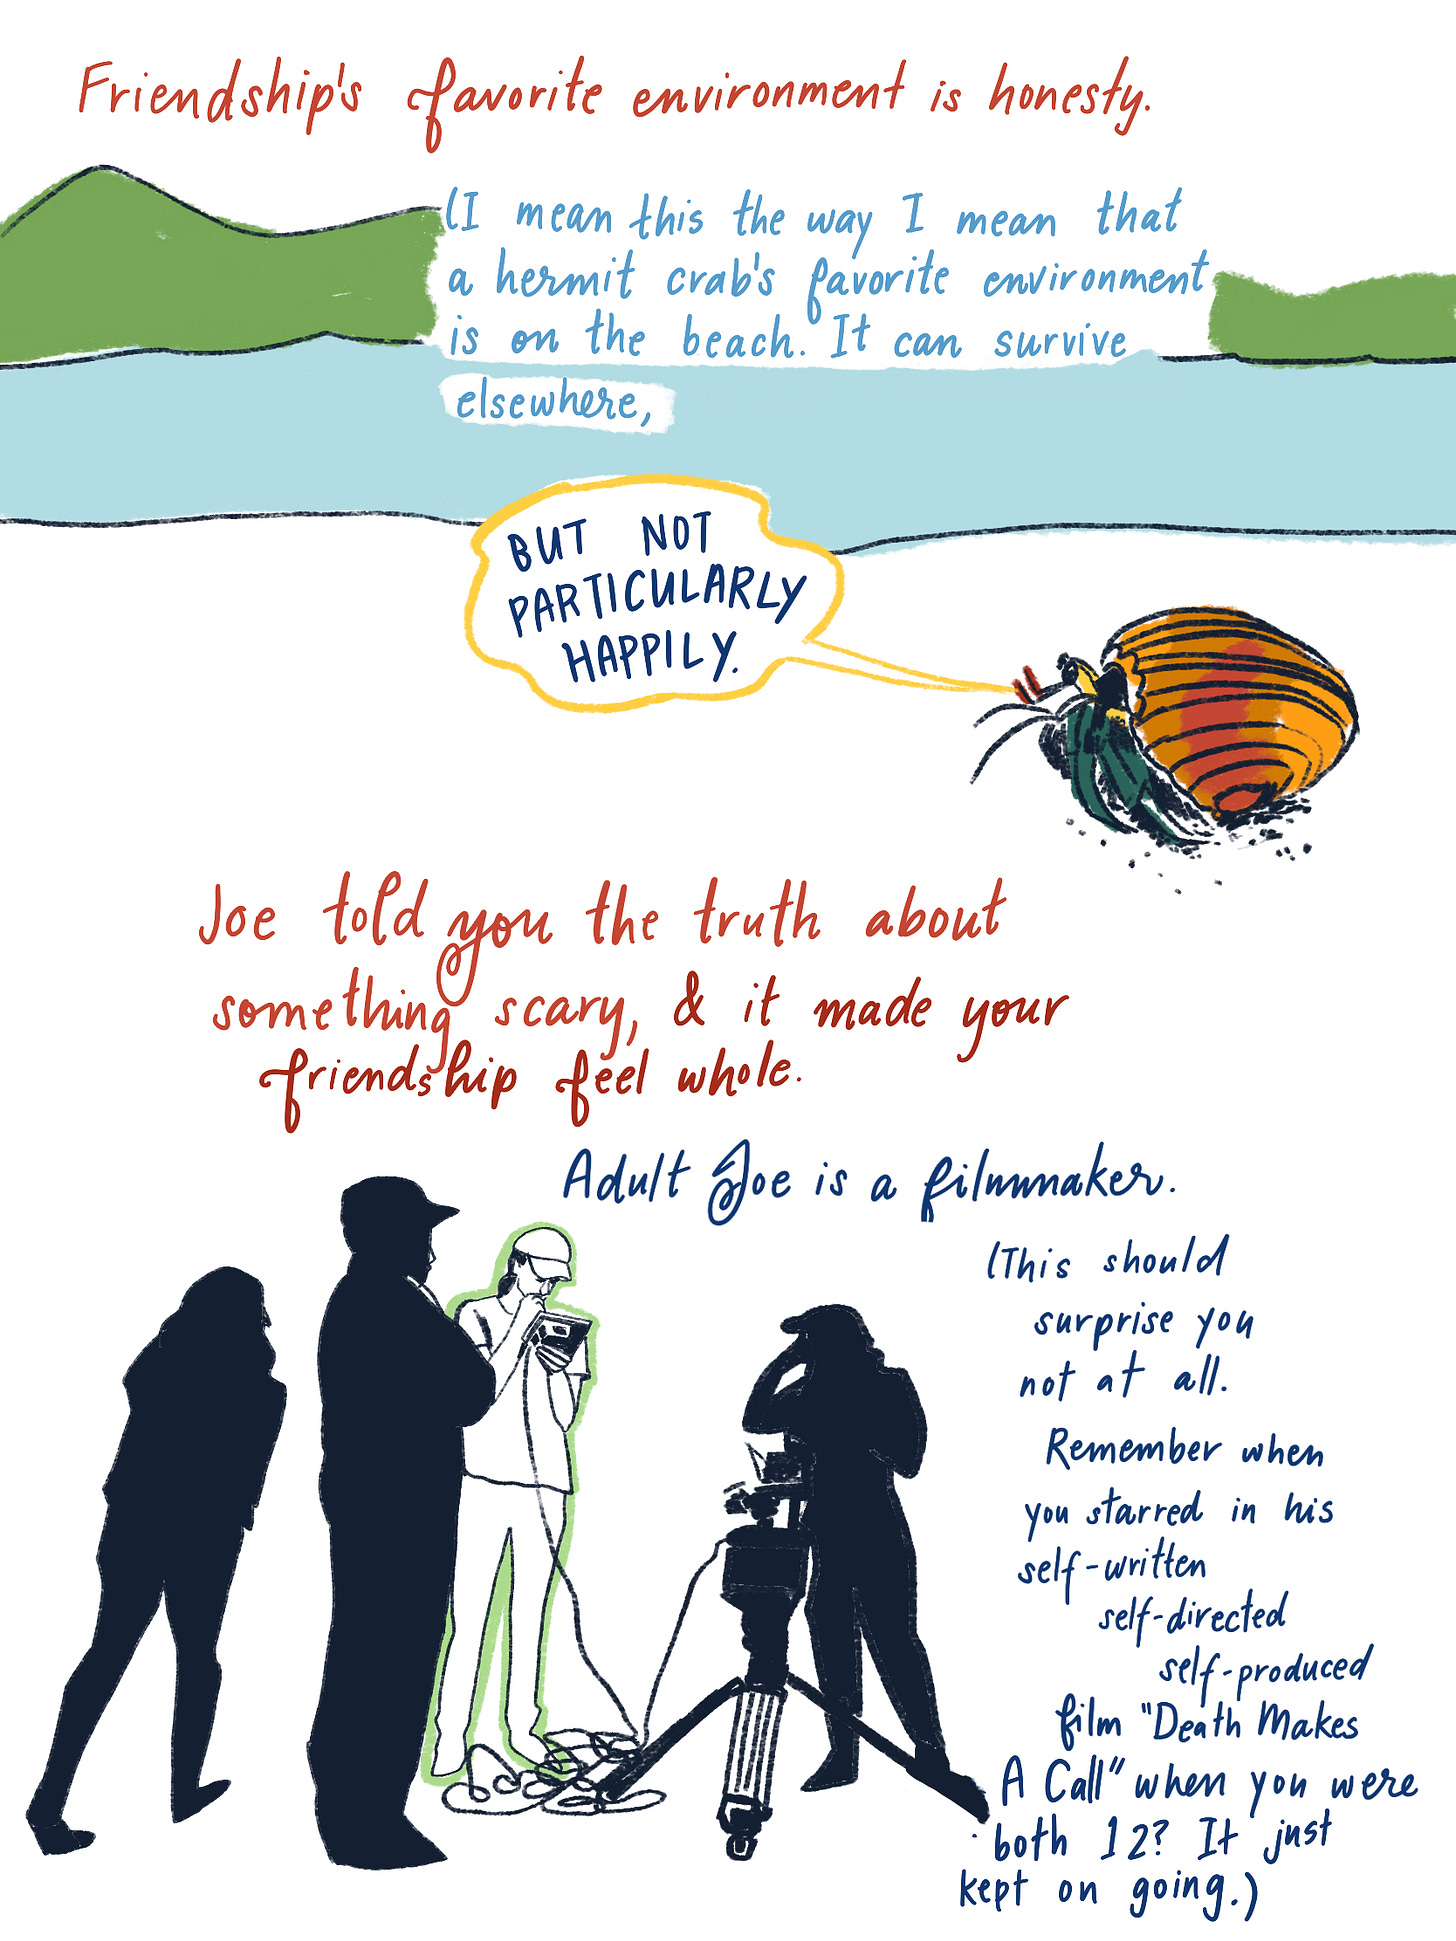 Friendship's favorite environment is honesty.
(I mean this the way I mean that
a hermit crab's favorite environment
is on the beach. It can survive
elsewhere,
BUT NOT
PARTICULARLY
HAPPILY.
Joe told you the truth about
something scary, & it made your
friendship feel whole.
Adult Joe is a filmmaker.
(This should
surprise you
not at all.
Remember when
you starred in his
self-written
self-directed
self-produced
film "Death Makes
A Call" when you were
both 12? It just
kept on going.)